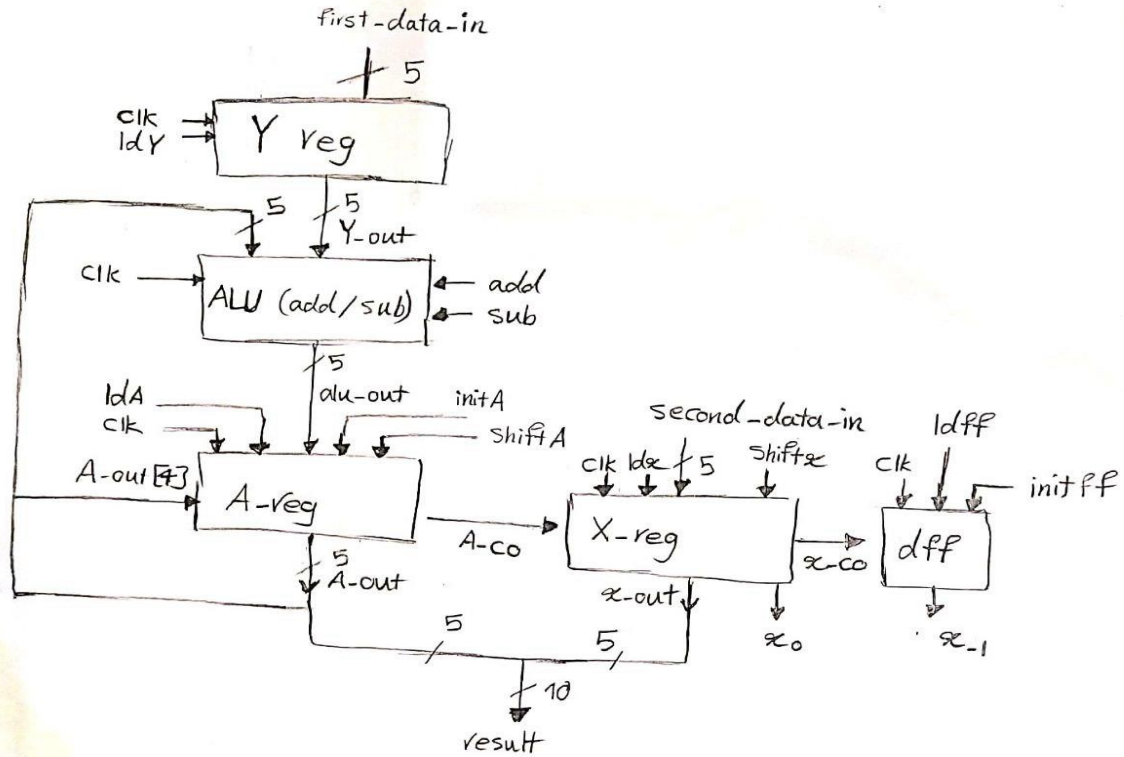 first_data_in
5
clk
ldY
Y reg
5
5
Y_out
clk
ALU (add/sub)
add
sub
5
alu_out
ldA
clk
initA
shiftA
A_out[4]
A_reg
A_co
5
A_out
second_data_in
clk
ldx
5
shiftx
X_reg
x_co
x_out
x₀
clk
ldff
initff
dff
x₋₁
5
5
10
result